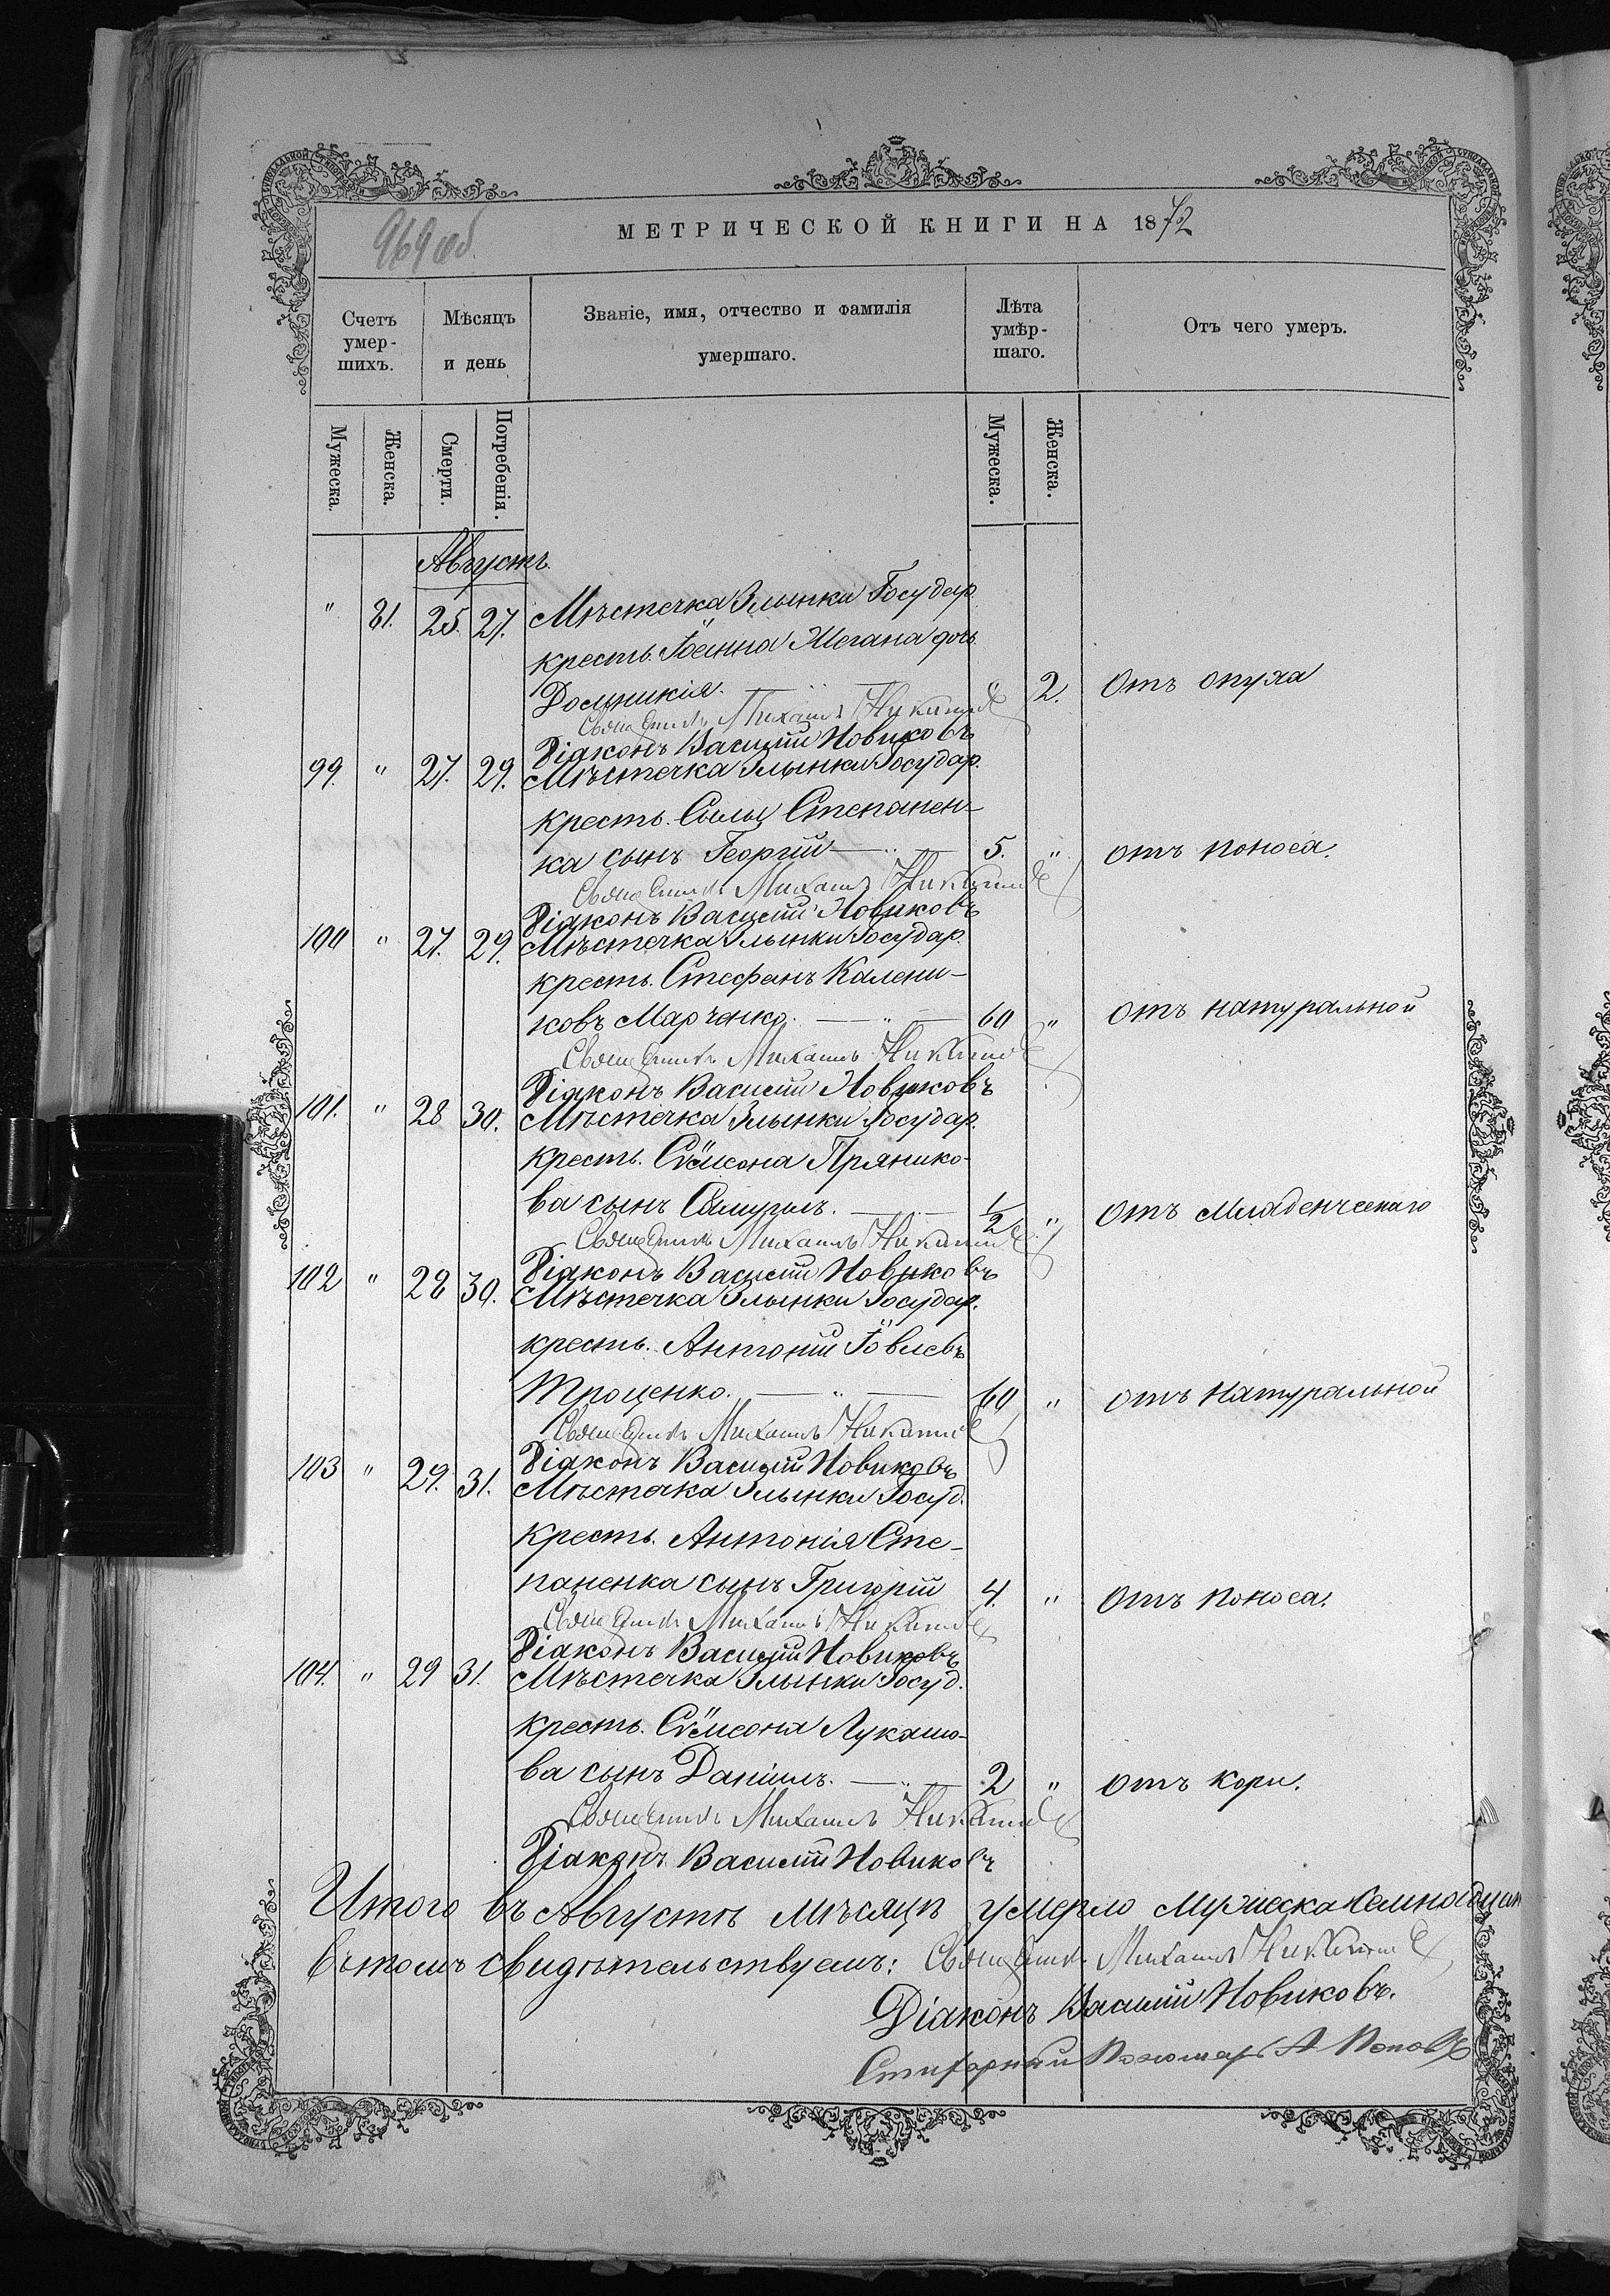 969 об
МЕТРИЧЕСКОЙ КНИГИ НА 1872
Счетъ умер-шихъ.
Мѣсяцъ и день
Званіе, имя, отчество и фамилія умершаго.
Лѣта умѣр-шаго.
Отъ чего умеръ.
Мужеска. Женска. Смерти. Погребенія. Мужеска. Женска.
Августъ.
" 81. 25. 27. Мѣстечка Злынки Государ.
крестъ. Іоанна Жегана дочь
Домникія. " 2. Отъ опуха
Священникъ Михаилъ Никитинъ
Діаконъ Василій Новиковъ
99. " 27. 29. Мѣстечка Злынки Государ.
крестъ. Силы Степанен-
ка сынъ Георгій 5. " отъ поноса.
Священникъ Михаилъ Никитинъ
Діаконъ Василій Новиковъ
100 " 27. 29. Мѣстечка Злынки Государ.
крестъ. Стефанъ Калени-
ковъ Марченко. 60 " отъ натуральной
Священникъ Михаилъ Никитинъ
Діаконъ Василій Новиковъ
101. " 28 30. Мѣстечка Злынки Государ.
крестъ. Сѵмеона Прянико-
ва сынъ Самуилъ. 1/2 " отъ младенческаго
Священникъ Михаилъ Никитинъ
Діаконъ Василій Новиковъ
102 " 28 30. Мѣстечка Злынки Государ.
крестъ. Антоній Іовлевъ
Троценко. 60 " отъ Натуральной
Священникъ Михаилъ Никитинъ
Діаконъ Василій Новиковъ
103 " 29. 31. Мѣстечка Злынки Госуд.
крестъ. Антонія Сте-
паненка сынъ Григорій 4. " Отъ поноса.
Священникъ Михаилъ Никитинъ
Діаконъ Василій Новиковъ
104. " 29 31. Мѣстечка Злынки Госуд.
крестъ. Сѵмеона Лукашо-
ва сынъ Даніилъ. 2 " отъ кори.
Священникъ Михаилъ Никитинъ
Діаконъ Василій Новиковъ
Итого въ Августѣ мѣсяцѣ умерло Мужеска
Въ томъ свидѣтельствуемъ: Священникъ Михаилъ Никитинъ
Діаконъ Василій Новиковъ.
Стихарный Пономарь А Поповъ